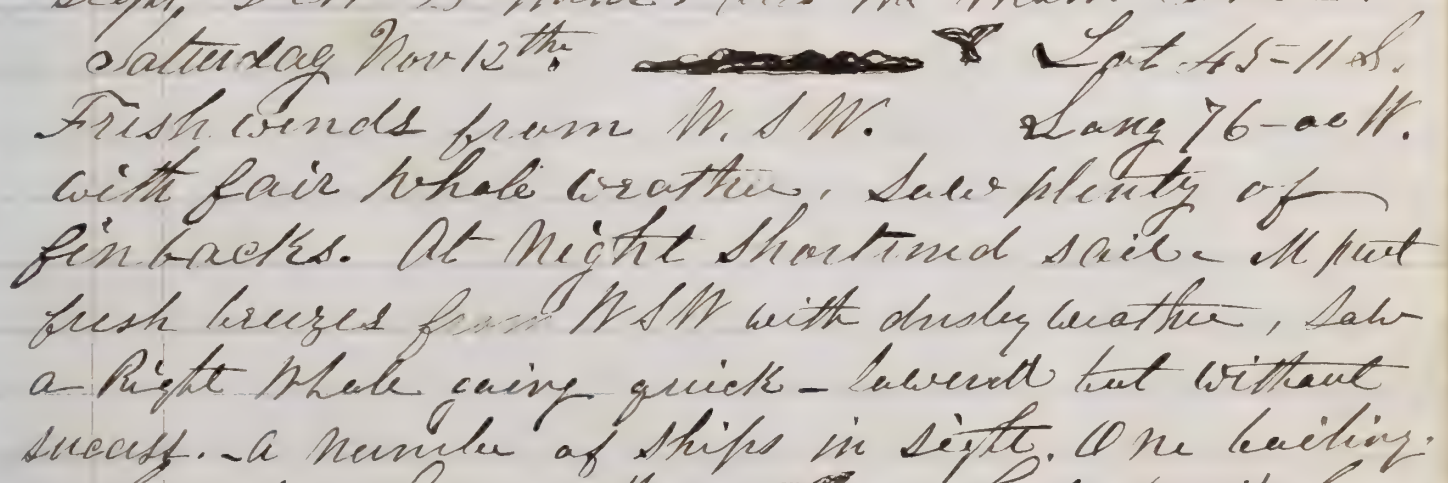 Satturday Nov 12th. Lat 45-11 S.
Fresh winds from W. S W. Long 76-00 W.
with fair Whale weather, Saw plenty of
finbacks. At Night Shortined sail. M part
fresh breezes from W S W with dusky weather, Saw
a Right Whale going quick - lowered but without
success. - a number of ships in sight. One boiling.